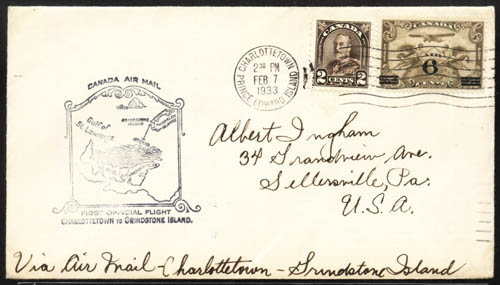 CANADA AIR MAIL
GRINDSTONE ISLAND
Gulf of
St. Lawrence
FIRST OFFICIAL FLIGHT
CHARLOTTETOWN TO GRINDSTONE ISLAND.
CHARLOTTETOWN
2 30 PM
FEB 7
1933
PRINCE EDWARD ISLAND
CANADA
2 CENTS 2
CANADA
6
Albert Ingham
34 Grandview Ave.
Sellersville, Pa.
U.S.A.
Via Air Mail - Charlottetown - Grindstone Island